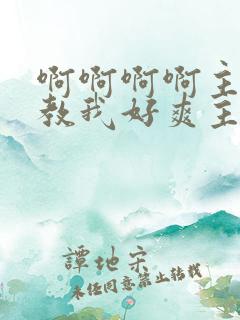 啊啊啊啊主
教我好爽主
譚地宋
未经同意禁止转载